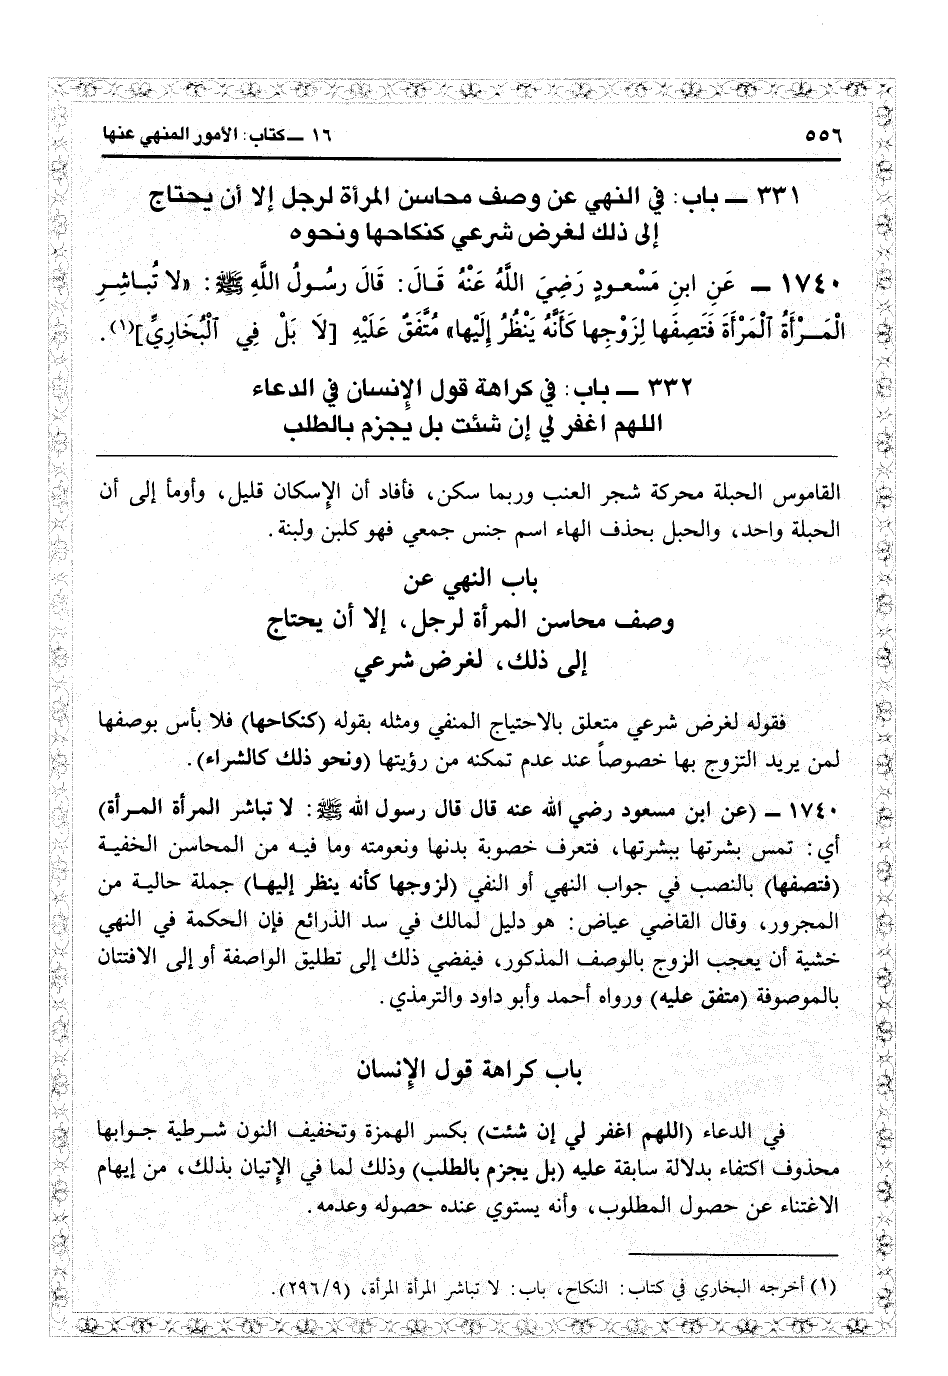 ٥٥٦
١٦ ــ كتاب: الأمور المنهي عنها
٣٣١ ــ باب: في النهي عن وصف محاسن المرأة لرجل إلا أن يحتاج
إلى ذلك لغرض شرعي كنكاحها ونحوه
١٧٤٠ ــ عَنِ ابنِ مَسْعـودٍ رَضِيَ اللَّهُ عَنْهُ قَـالَ: قَالَ رسُـولُ اللَّهِ ﷺ: «لا تُبـاشِـرِ
المَـرْأةُ ٱلْمَرْأَةَ فَتَصِفَها لِزَوْجِها كَأنَّهُ يَنْظُرُ إلَيْها» مُتَّفَقٌ عَلَيْهِ [لَا بَلْ فِي ٱلْبُخَارِيِّ](١).
٣٣٢ ــ باب: في كراهة قول الإنسان في الدعاء
اللهم اغفر لي إن شئت بل يجزم بالطلب
القاموس الحبلة محركة شجر العنب وربما سكن، فأفاد أن الإسكان قليل، وأومأ إلى أن
الحبلة واحد، والحبل بحذف الهاء اسم جنس جمعي فهو كلبن ولبنة.
باب النهي عن
وصف محاسن المرأة لرجل، إلا أن يحتاج
إلى ذلك، لغرض شرعي
فقوله لغرض شرعي متعلق بالاحتياج المنفي ومثله بقوله (كنكاحها) فلا بأس بوصفها
لمن يريد التزوج بها خصوصاً عند عدم تمكنه من رؤيتها (ونحو ذلك كالشراء).
١٧٤٠ ــ (عن ابن مسعود رضي الله عنه قال قال رسول الله ﷺ: لا تباشر المرأة المـرأة)
أي: تمس بشرتها ببشرتها، فتعرف خصوبة بدنها ونعومته وما فيـه من المحاسن الخفيـة
(فتصفها) بالنصب في جواب النهي أو النفي (لزوجها كأنه ينظر إليهـا) جملة حالية من
المجرور، وقال القاضي عياض: هو دليل لمالك في سد الذرائع فإن الحكمة في النهي
خشية أن يعجب الزوج بالوصف المذكور، فيفضي ذلك إلى تطليق الواصفة أو إلى الافتتان
بالموصوفة (متفق عليه) ورواه أحمد وأبو داود والترمذي.
باب كراهة قول الإنسان
في الدعاء (اللهم اغفر لي إن شئت) بكسر الهمزة وتخفيف النون شـرطية جـوابها
محذوف اكتفاء بدلالة سابقة عليه (بل يجزم بالطلب) وذلك لما في الإتيان بذلك، من إيهام
الاغتناء عن حصول المطلوب، وأنه يستوي عنده حصوله وعدمه.
(١) أخرجه البخاري في كتاب: النكاح، باب: لا تباشر المرأة المرأة، (٢٩٦/٩).